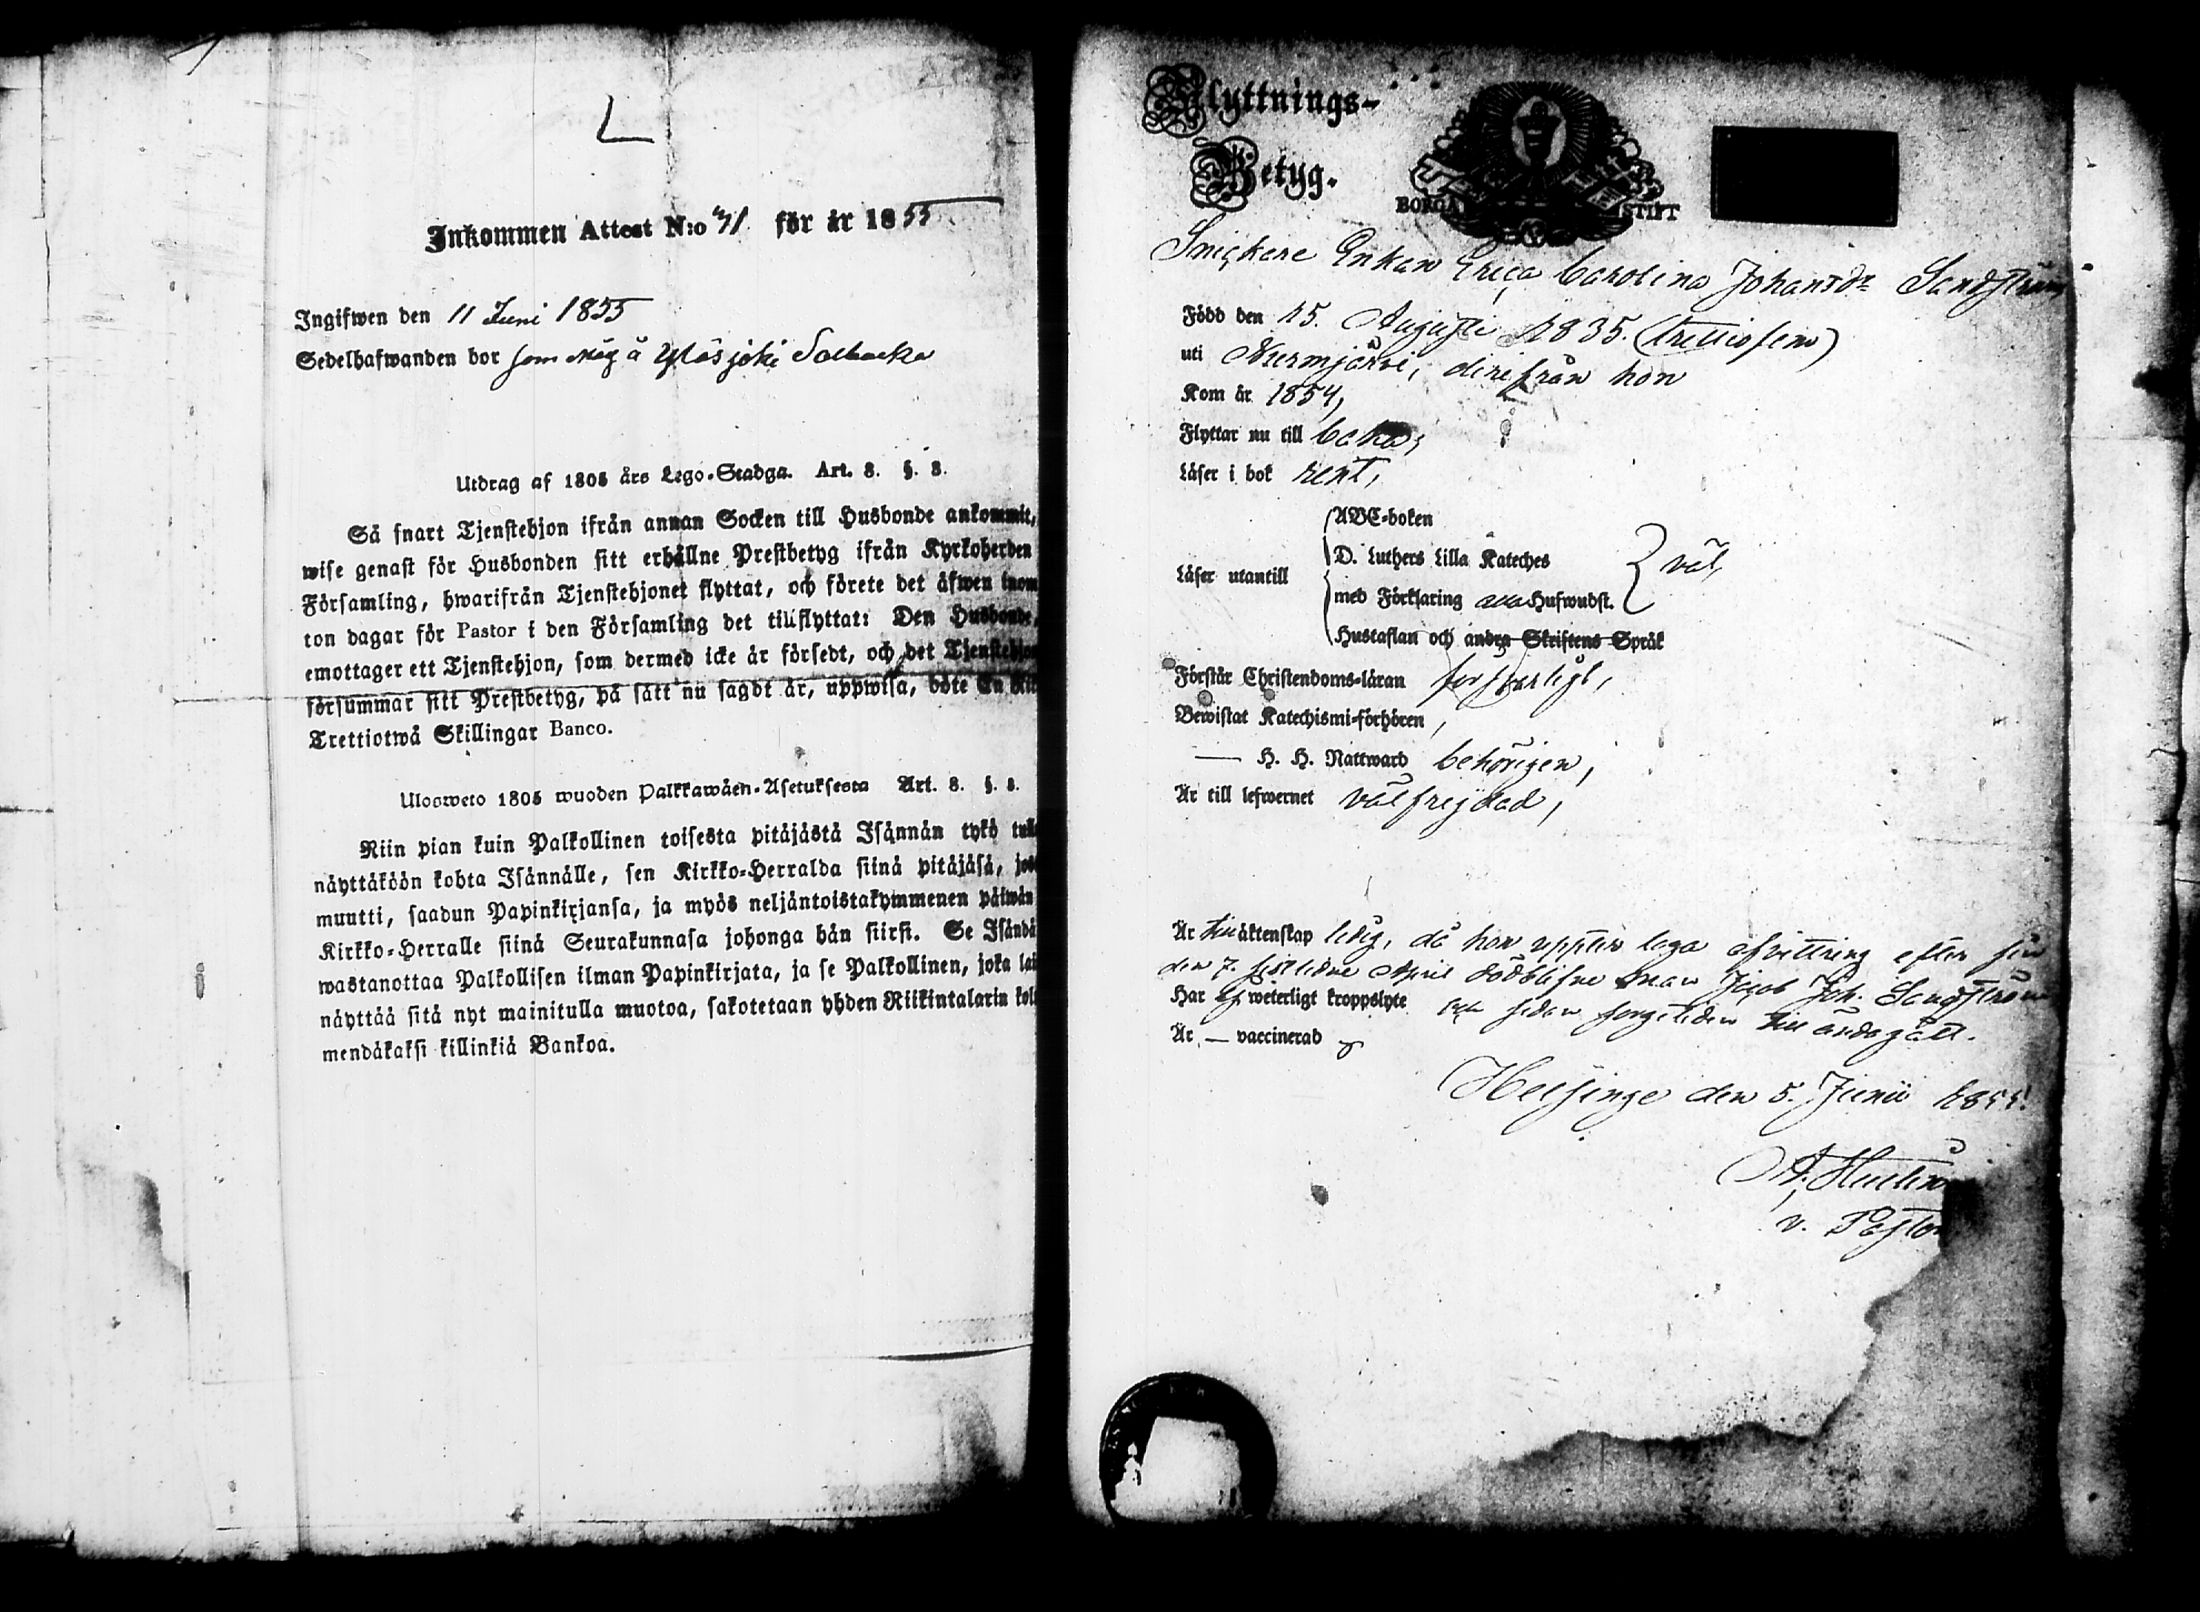 Inkommen Attest N:o 31 för år 1855
Ingifwen den 11 Juni 1855
Sedelhafwanden bor som måg å Yläsjoki Solbacka
Utdrag af 1805 års Lego-Stadga. Art. 8. §. 8.
Så snart Tjenstehjon ifrån annan Socken till Husbonde ankommit,
wise genast för Husbonden sitt erhållne Prestbetyg ifrån Kyrkoherden
Församling, hwarifrån Tjenstehjonet flyttat, och förete det äfwen inom
ton dagar för Pastor i den Församling det tillflyttat: Den Husbonde,
emottager ett Tjenstehjon, som dermed icke är försedt, och det Tjenstehjon
försummar sitt Prestbetyg, på sätt nu sagdt är, uppwisa, böte En Rik
Trettiotwå Skillingar Banco.
Ulosweto 1805 wuoden Palkkawäen-Asetuksesta Art. 8. §. 8.
Niin pian kuin Palkollinen toisesta pitäjästä Isännän tykö tul
näyttäköön kohta Isännälle, sen Kirkko-Herralda siinä pitäjäsä, jos
muutti, saadun Papinkirjansa, ja myös neljäntoistakymmenen päiwän
Kirkko-Herralle siinä Seurakunnasa johonga hän siirsi. Se Isändä
wastanottaa Palkollisen ilman Papinkirjata, ja se Palkollinen, joka lai
näyttää sitä nyt mainitulla muotoa, sakotetaan yhden Riikintalarin kol
mendäkaksi killinkiä Bankoa.
Flyttnings-
Betyg.
BORGÅ STIFT
Snickare Enkan Erica Carolina Johansdr Sandström
Född den 15. Augusti 1835. (trettiofem)
uti Nurmjärvi, dirifrån hon
Kom år 1854,
Flyttar nu till
Läser i bok rent,
ABC-boken
D. Luthers Lilla Kateches
Läser utantill väl,
med Förklaring Hufwudst.
Hustaflan och andra Skriftens Språk
Förstår Christendoms-läran försvarligt,
Bewistat Katechismi-förhören,
— H. H. Nattward behörigen,
Är till lefwernet välfrejdad,
Är till äktenskap ledig, då hon laga afvittring efter sin
den 7. sistledne April dödblifne man Jacob Joh. Sandström
Har ej weterligt kroppslyte sedan sorgetiden till ända gått.
Är — vaccinerad
Helsinge den 5. Junii 1855.
A.
v. Pastor